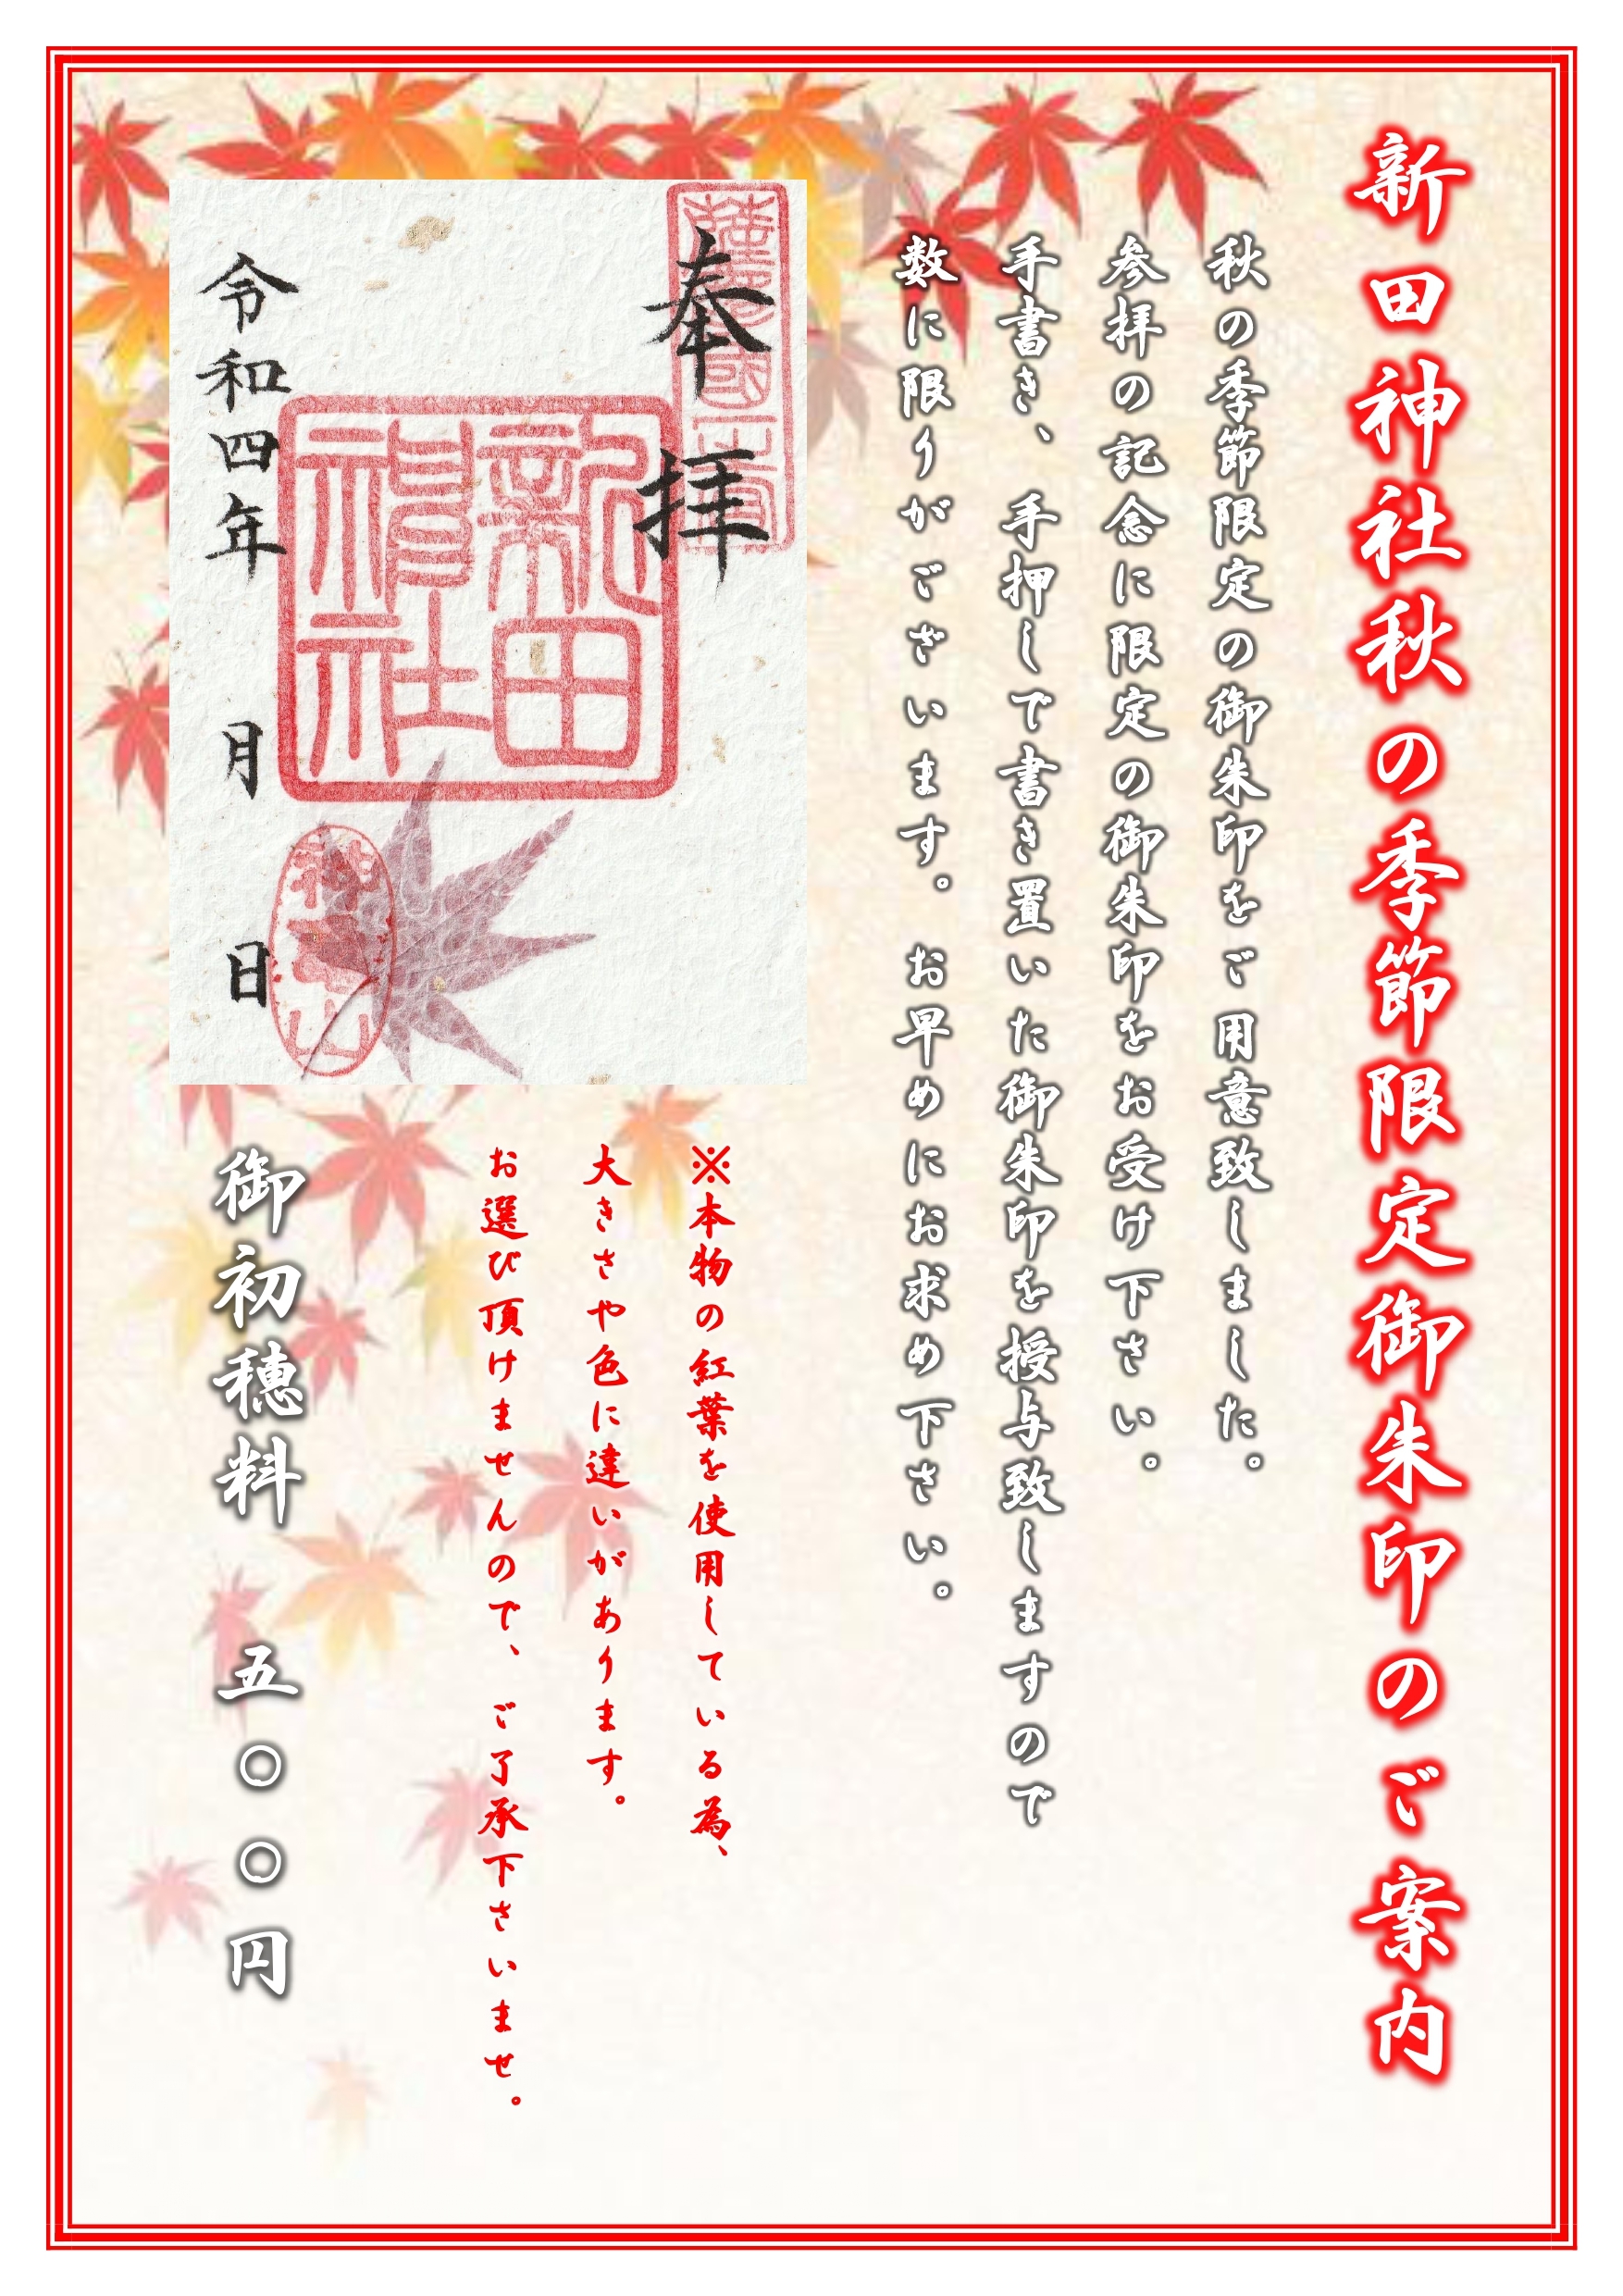 新田神社秋の季節限定御朱印のご案内
秋の季節限定の御朱印をご用意致しました。
参拝の記念に限定の御朱印をお受け下さい。
手書き、手押しで書き置いた御朱印を授与致しますので
数に限りがございます。お早めにお求め下さい。
奉拝
新田
神社
令和四年 月 日
※本物の紅葉を使用している為、
大きさや色に違いがあります。
お選び頂けませんので、ご了承下さいませ。
御初穂料 五〇〇円